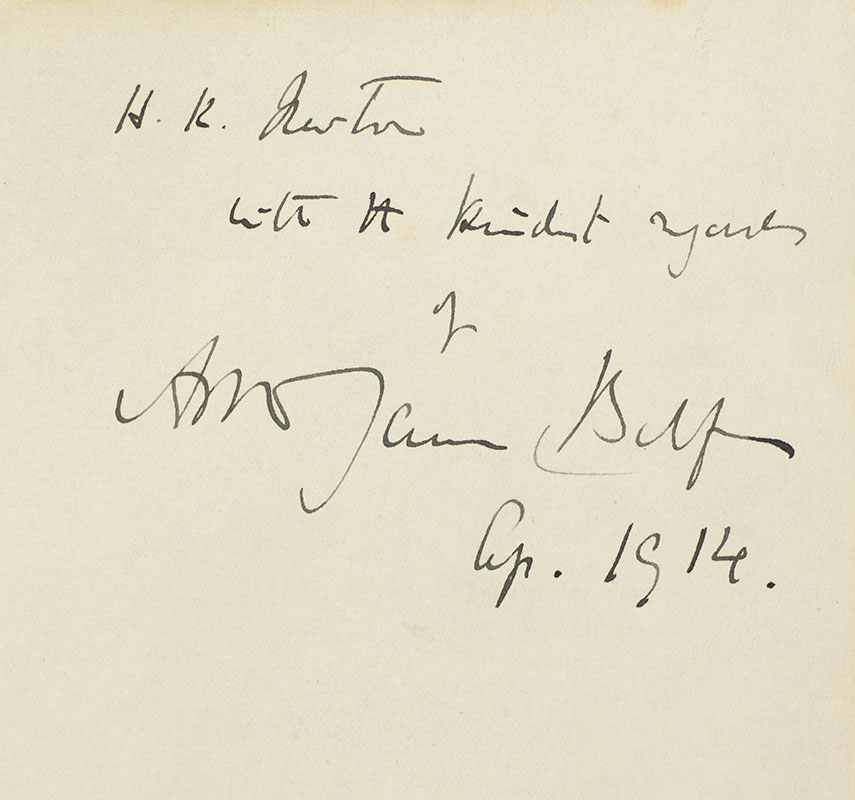 H. K. Newton
with the kindest regards
of
Arthur James Balfour
Ap. 1914.